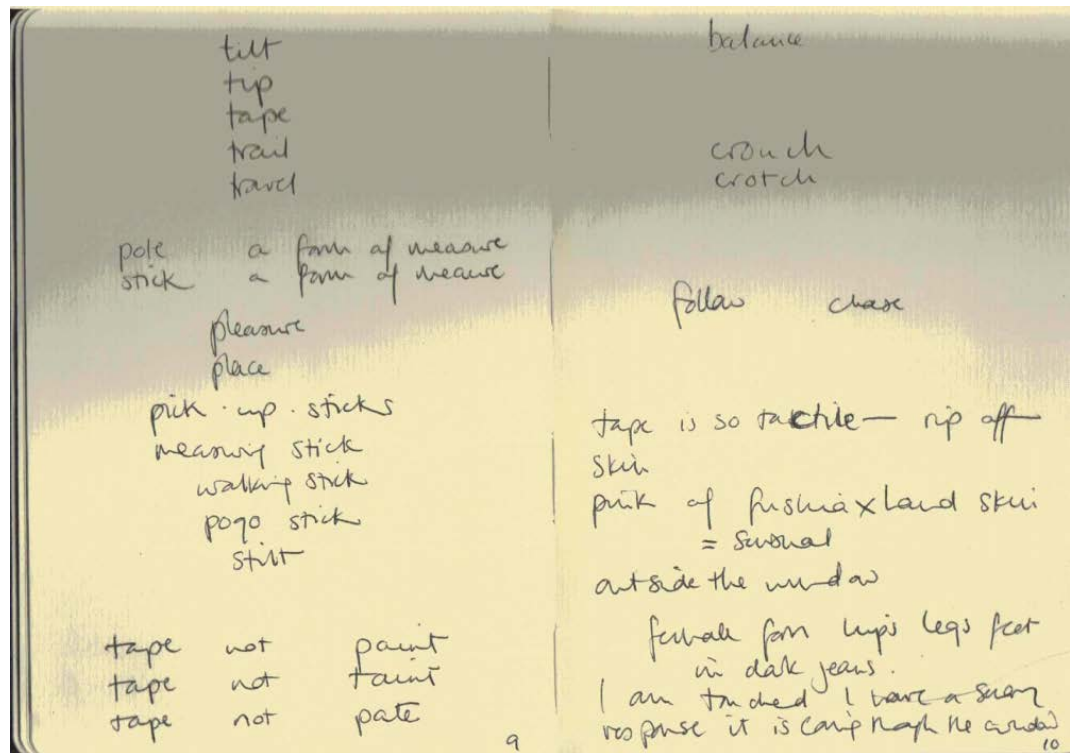 tilt
tip
tape
trail
travel
pole a form of measure
stick a form of measure
pleasure
place
pick . up . sticks
measuring stick
walking stick
pogo stick
stilt
tape not paint
tape not taint
tape not pate
9
balance
crouch
crotch
follow chase
tape is so tactile — rip off
skin
pink of fushia x skin
=
outside the window
female form legs feet
in dark jeans.
I am touched I have a
response it is through the window
10